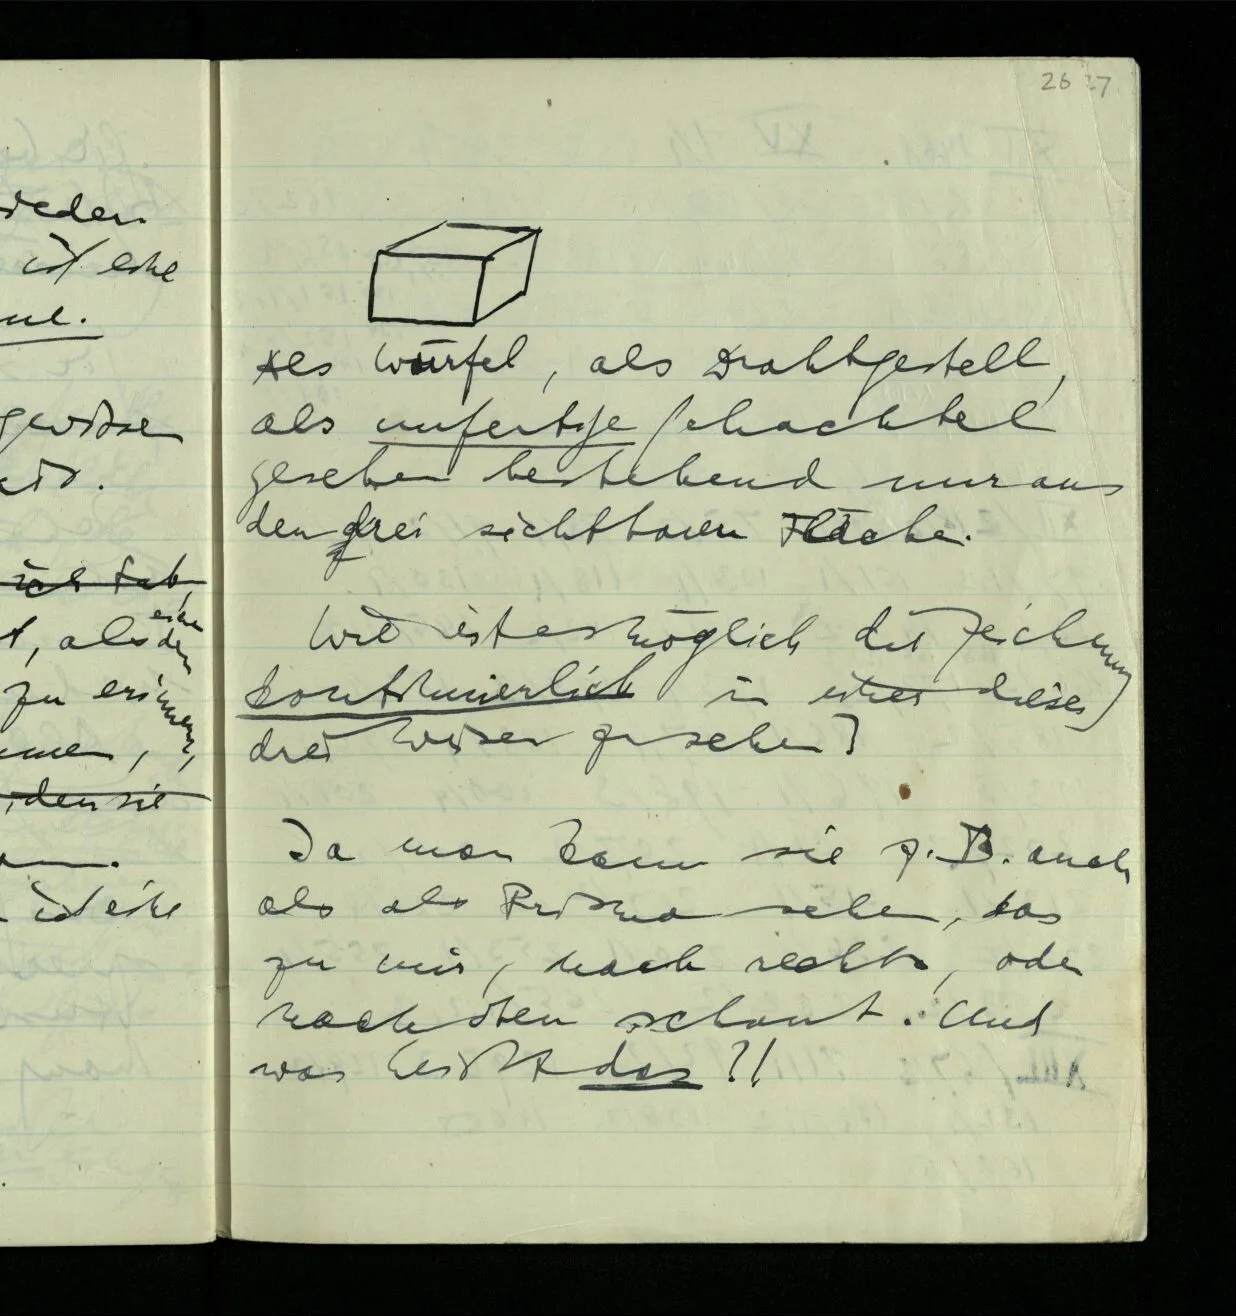 26 27
ieden
ist eine
gewisse
ist, als den
eine
zu erinnern,
, den sie
ist eine
Als Würfel, als Drahtgestell,
als unfertige Schachtel
gesehen bestehend nur aus
den drei sichtbaren Fläche.
Wie ist es möglich die Zeichnung
kontinuierlich in einer dieser
drei Weisen zu sehen?
Ja man kann sie z.B. auch
als als Prisma sehen, das
zu mir, nach rechts, oder
nach oben schaut. Und
was heißt das?!